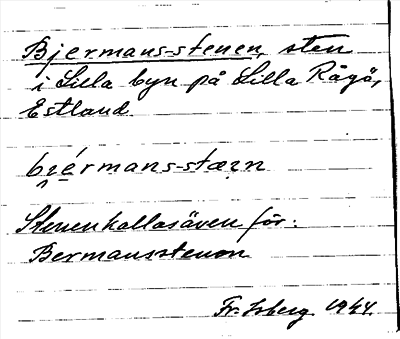 Bjermans-stenen, sten
i Lilla byn på Lilla Rågö,
Estland.
bi̯érmans-stæ̣n
Stenen kallas även för:
Bermansstenen
Fr. Isberg 1944.